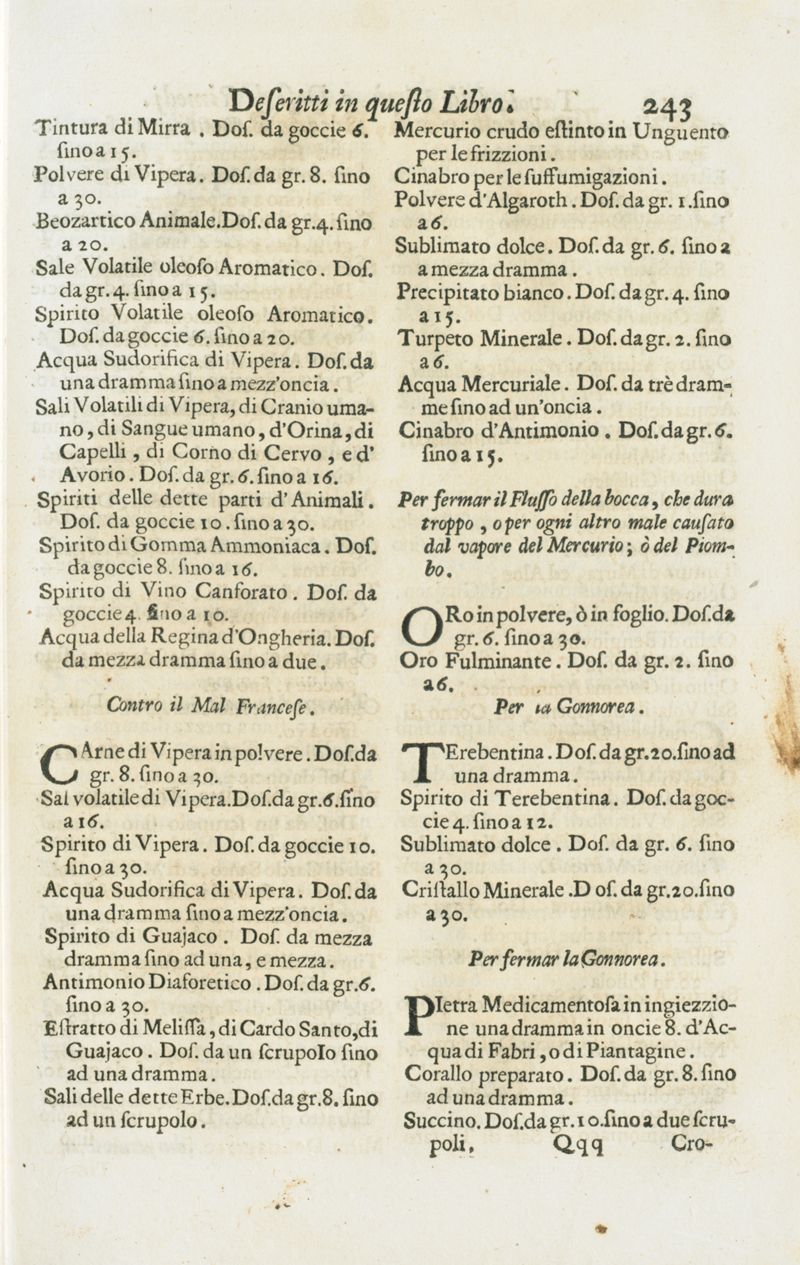 Deſeritti in queſto Libro. 243
Tintura di Mirra . Doſ. da goccie 6.
ſino a 15.
Polvere di Vipera. Doſ. da gr. 8. ſino
a 30.
Beozartico Animale. Doſ. da gr. 4. ſino
a 20.
Sale Volatile oleoſo Aromatico. Doſ.
da gr. 4. ſino a 15.
Spirito Volatile oleoſo Aromatico.
Doſ. da goccie 6. ſino a 20.
Acqua Sudorifica di Vipera. Doſ. da
una dramma ſino a mezz'oncia.
Sali Volatili di Vipera, di Cranio uma-
no, di Sangue umano, d'Orina, di
Capelli, di Corno di Cervo, e d'
Avorio. Doſ. da gr. 6. ſino a 16.
Spiriti delle dette parti d'Animali.
Doſ. da goccie 10. ſino a 30.
Spirito di Gomma Ammoniaca. Doſ.
da goccie 8. ſino a 16.
Spirito di Vino Canforato. Doſ. da
goccie 4. ſino a 10.
Acqua della Regina d'Ongheria. Doſ.
da mezza dramma ſino a due.
Contro il Mal Franceſe.
CArne di Vipera in polvere. Doſ. da
gr. 8. ſino a 30.
Sal volatile di Vipera. Doſ. da gr. 6. ſino
a 16.
Spirito di Vipera. Doſ. da goccie 10.
ſino a 30.
Acqua Sudorifica di Vipera. Doſ. da
una dramma ſino a mezz'oncia.
Spirito di Guajaco. Doſ. da mezza
dramma ſino ad una, e mezza.
Antimonio Diaforetico. Doſ. da gr. 6.
ſino a 30.
Eſtratto di Meliſſa, di Cardo Santo, di
Guajaco. Doſ. da un ſcrupolo ſino
ad una dramma.
Sali delle dette Erbe. Doſ. da gr. 8. ſino
ad un ſcrupolo.
Mercurio crudo eſtinto in Unguento
per le frizzioni.
Cinabro per le ſuffumigazioni.
Polvere d'Algaroth. Doſ. da gr. 1. ſino
a 6.
Sublimato dolce. Doſ. da gr. 6. ſino a
a mezza dramma.
Precipitato bianco. Doſ. da gr. 4. ſino
a 15.
Turpeto Minerale. Doſ. da gr. 2. ſino
a 6.
Acqua Mercuriale. Doſ. da trè dram-
me ſino ad un'oncia.
Cinabro d'Antimonio. Doſ. da gr. 6.
ſino a 15.
Per fermar il Fluſſo della bocca, che dura
troppo, o per ogni altro male cauſato
dal vapore del Mercurio; ò del Piom-
bo.
ORo in polvere, ò in foglio. Doſ. da
gr. 6. ſino a 30.
Oro Fulminante. Doſ. da gr. 2. ſino
a 6.
Per la Gonnorea.
TErebentina. Doſ. da gr. 20. ſino ad
una dramma.
Spirito di Terebentina. Doſ. da goc-
cie 4. ſino a 12.
Sublimato dolce. Doſ. da gr. 6. ſino
a 30.
Criſtallo Minerale .D oſ. da gr. 20. ſino
a 30.
Per fermar la Gonnorea.
PIetra Medicamentoſa in ingiezzio-
ne una dramma in oncie 8. d'Ac-
qua di Fabri, o di Piantagine.
Corallo preparato. Doſ. da gr. 8. ſino
ad una dramma.
Succino. Doſ. da gr. 10. ſino a due ſcru-
poli. Qqq Cro-